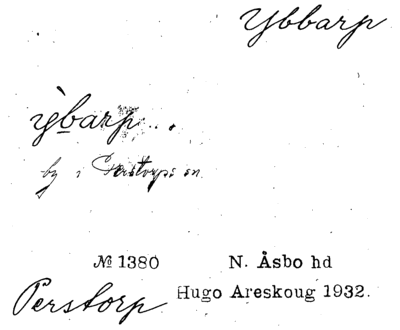 Ybbarp
ẏ̀barp
by i Perstorps sn
№ 1380 N. Åsbo hd
Perstorp Hugo Areskoug 1932.